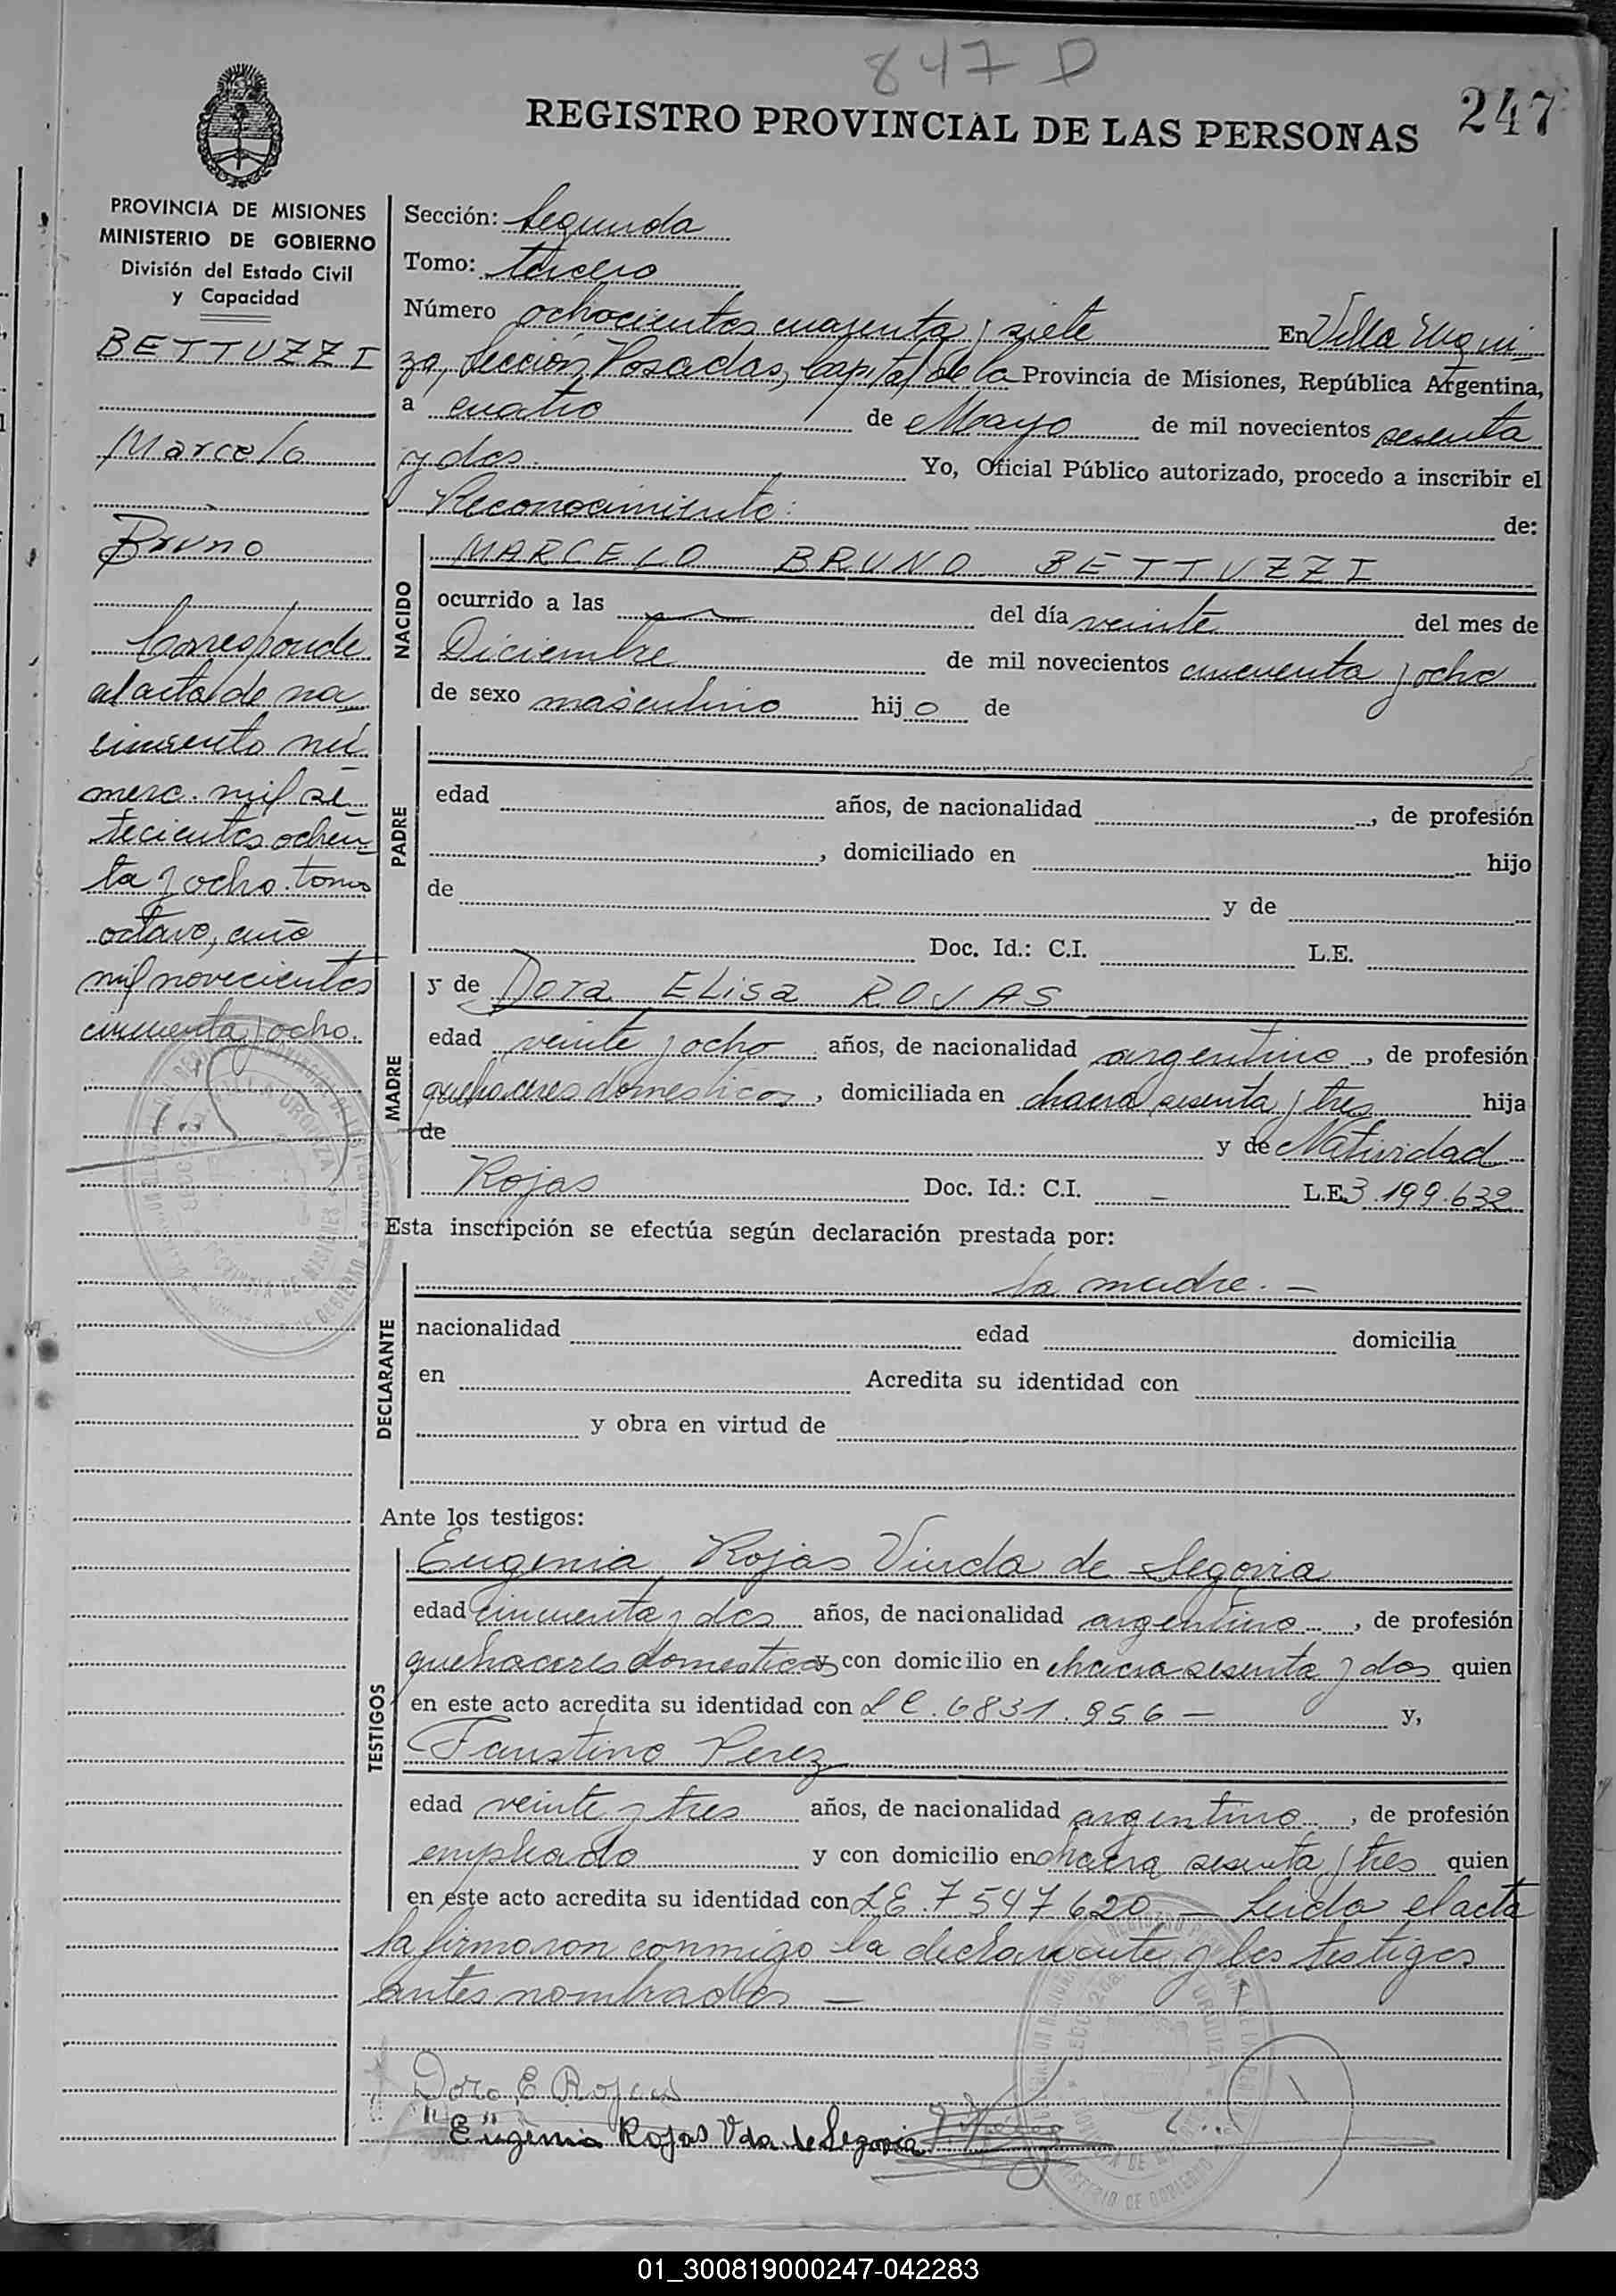 847 D
247
REGISTRO PROVINCIAL DE LAS PERSONAS
PROVINCIA DE MISIONES
MINISTERIO DE GOBIERNO
División del Estado Civil
y Capacidad
BETTUZZI
Marcelo
Bruno
Corresponde
al acta de na
cimiento nú
mero mil se
tecientos ochen
ta y ocho tomo
octavo, año
mil novecientos
cincuenta y ocho.
Sección: Segunda
Tomo: tercero
Número ochocientos cuarenta y siete En Villa Urqui
za, Sección Posadas, Capital de la Provincia de Misiones, República Argentina,
a cuatro de Mayo de mil novecientos sesenta
y dos. Yo, Oficial Público autorizado, procedo a inscribir el
Reconocimiento: de:
NACIDO
MARCELO BRUNO BETTUZZI
ocurrido a las del día veinte del mes de
Diciembre de mil novecientos cincuenta y ocho
de sexo masculino hijo de
PADRE
edad años, de nacionalidad , de profesión
, domiciliado en hijo
de y de
Doc. Id.: C.I. L.E.
MADRE
y de Dora ELisa ROJAS
edad veinte y ocho años, de nacionalidad argentino, de profesión
quehaceres domesticos, domiciliada en chacra sesenta y tres hija
de y de Natividad
Rojas Doc. Id.: C.I. – L.E. 3.199.632
Esta inscripción se efectúa según declaración prestada por:
DECLARANTE
la madre. –
nacionalidad edad domicilia
en Acredita su identidad con
y obra en virtud de
Ante los testigos:
TESTIGOS
Eugenia Rojas Viuda de Segovia
edad cincuenta y dos años, de nacionalidad argentino, de profesión
quehaceres domesticos y con domicilio en chacra sesenta y dos quien
en este acto acredita su identidad con LC. 6831.956 – y,
Faustino Perez
edad veinte y tres años, de nacionalidad argentino, de profesión
empleado y con domicilio en chacra sesenta y tres quien
en este acto acredita su identidad con LE. 7547620 – Leida el acta
la firmaron conmigo la declarante y los testigos
antes nombrados –
Dora E Rojas
Eugenia Rojas Vda de Segovia
01_300819000247-042283